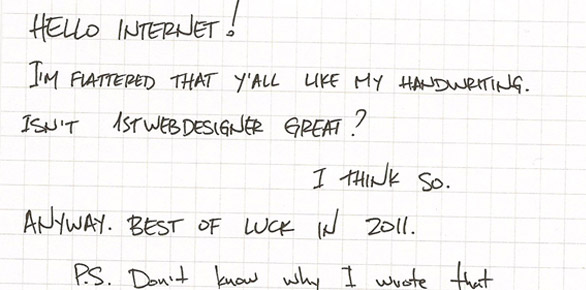 HELLO INTERNET!
I'M FLATTERED THAT Y'ALL LIKE MY HANDWRITING.
ISN'T 1STWEBDESIGNER GREAT?
I THINK SO.
ANYWAY. BEST OF LUCK IN 2011.
P.S. Don't know why I wrote that